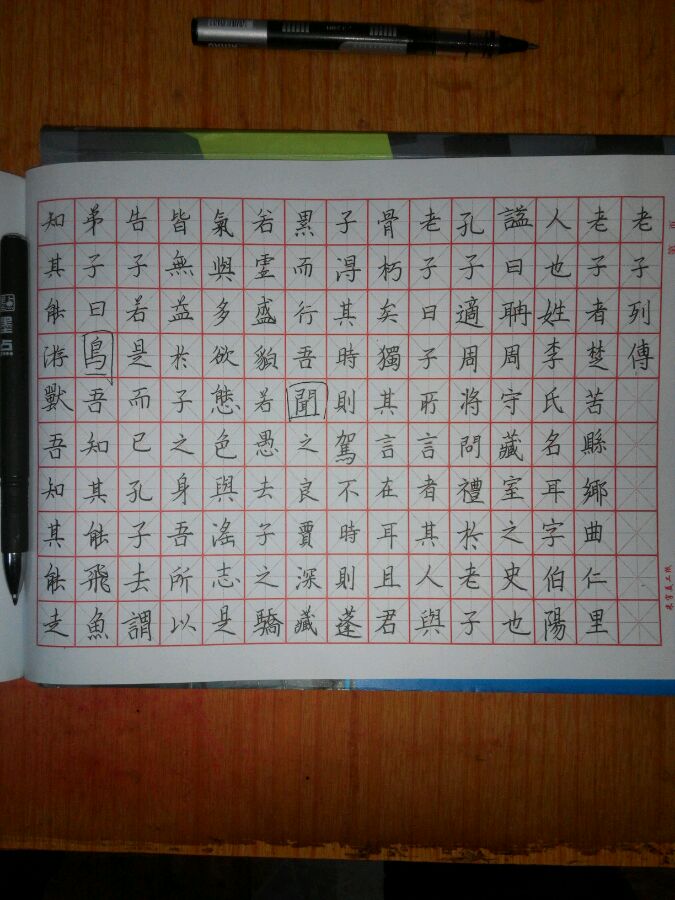 老子列傳
老子者楚苦縣鄉曲仁里
人也姓李氏名耳字伯陽
諡曰聃周守藏室之史也
孔子適周將問禮於老子
老子曰子所言者其人與
骨朽矣獨其言在耳且君
子得其時則駕不時則蓬
累而行吾聞之良賈深藏
若虛盛貌若愚去子之驕
氣與多欲態色與淫志是
皆無益於子之身吾所以
告子若是而已孔子去謂
弟子曰鳥吾知其能飛魚
知其能游獸吾知其能走
頁 第